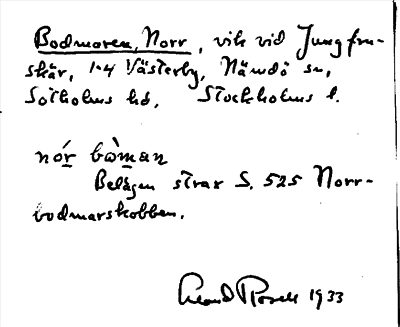 Bodmaren, Norr, vik vid Jungfru-
skär, 1-4 Västerby, Nämdö sn,
Sotholms hd, Stockholms l.
nór bòman
Belägen strax S. 525 Norr-
bodmarskobben.
1933